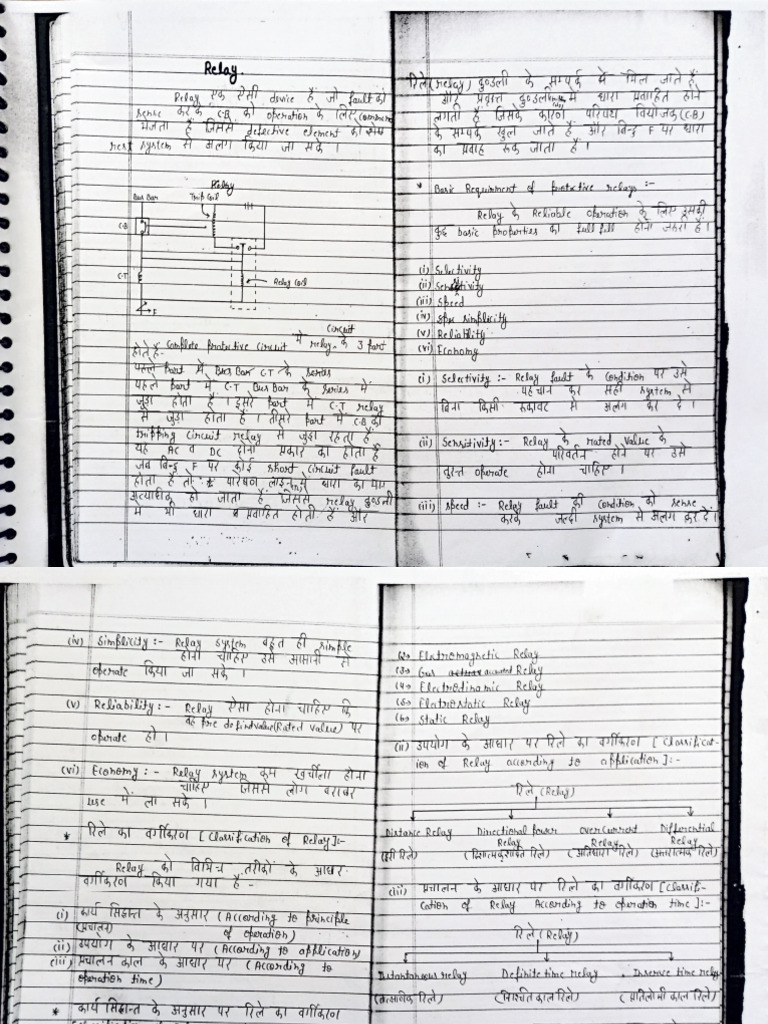 Relay.
Relay एक ऐसी device है जो fault को
sense करके C.B को operation के लिए command
भेजता है जिससे defective element को
rest system से अलग किया जा सके।
Relay
Bus Bar
Trip Coil
C-B
C-T
Relay Coil
F
circuit
होते है- Complete protective circuit में relay के 3 part
पहले part में Bus Bar C-T के series
पहले part में C-T Bus Bar के series में
जुड़ा होता है। दूसरे part में C-T relay
से जुड़ा होता है। तीसरे part में C-B की
tripping circuit relay से जुड़ा रहता है
यह AC व DC दोनो प्रकार का होता है
जब बिन्दु F पर कोई short circuit fault
होता है तो पारेषण लाइन में धारा का मान
अत्याधिक हो जाता है जिससे relay कुण्डली
में भी धारा प्रवाहित होती है और
रिले(relay) कुण्डली के सम्पर्क में मिल जाते है
और कुण्डली में धारा प्रवाहित होने
लगती है जिसके कारण परिपथ वियोजक (C-B)
के सम्पर्क खुल जाते है और बिन्दु F पर धारा
का प्रवाह रुक जाता है।
* Basic Requirment of protective relays :-
Relay के Reliable operation के लिए इसकी
कुछ basic properties का full fill होना जरुरी है।
(i) Selectivity
(ii) Sensitivity
(iii) Speed
(iv) simplicity
(v) Reliability
(vi) Economy
(i) Selectivity :- Relay fault के Condition पर उसे
पहचान कर सही system से
बिना किसी रुकावट से अलग कर दे।
(ii) Sensitivity :- Relay के rated value के
परिवर्तन होने पर उसे
तुरन्त operate होना चाहिए।
(iii) speed :- Relay fault की condition को sense
करके जल्दी system से अलग कर दें।
(iv) Simplicity :- Relay system बहुत ही simple
होना चाहिए उसे आसानी से
operate किया जा सके।
(v) Reliability :- Relay ऐसा होना चाहिए कि
वह Pre defind value (Rated value) पर
operate हो।
(vi) Economy :- Relay system कम खर्चीला होना
चाहिए जिससे लोग बराबर
use में ला सके।
* रिले का वर्गीकरण [Classification of Relay]:-
Relay को विभिन्न तरीकों के आधार
वर्गीकरण किया गया है -
(i) कार्य सिद्धान्त के अनुसार (According to principle
(प्रचालन) of operation)
(ii) उपयोग के आधार पर (According to application)
(iii) प्रचालन काल के आधार पर (According to
operation time)
* कार्य सिद्धान्त के अनुसार पर रिले का वर्गीकरण
(2) Elatromagnetic Relay
(3) Gas Relay
(4) Electrodinamic Relay
(5) Elatrostatic Relay
(6) Static Relay
(ii) उपयोग के आधार पर रिले का वर्गीकरण [Classificat-
ion of Relay according to application]:-
रिले (Relay)
Distance Relay Directional power Over Current Differential
Relay Relay Relay
(दूरी रिले) (दिशात्मक शक्ति रिले) (अतिधारा रिले) (अन्तरात्मक रिले)
(iii) प्रचालन के आधार पर रिले का वर्गीकरण [Classifi-
cation of Relay According to operation time]:-
रिले (Relay)
Instantaneous relay Definite time relay Inverse time relay
(तात्क्षणिक रिले) (निश्चित काल रिले) (प्रतिलोमी काल रिले)